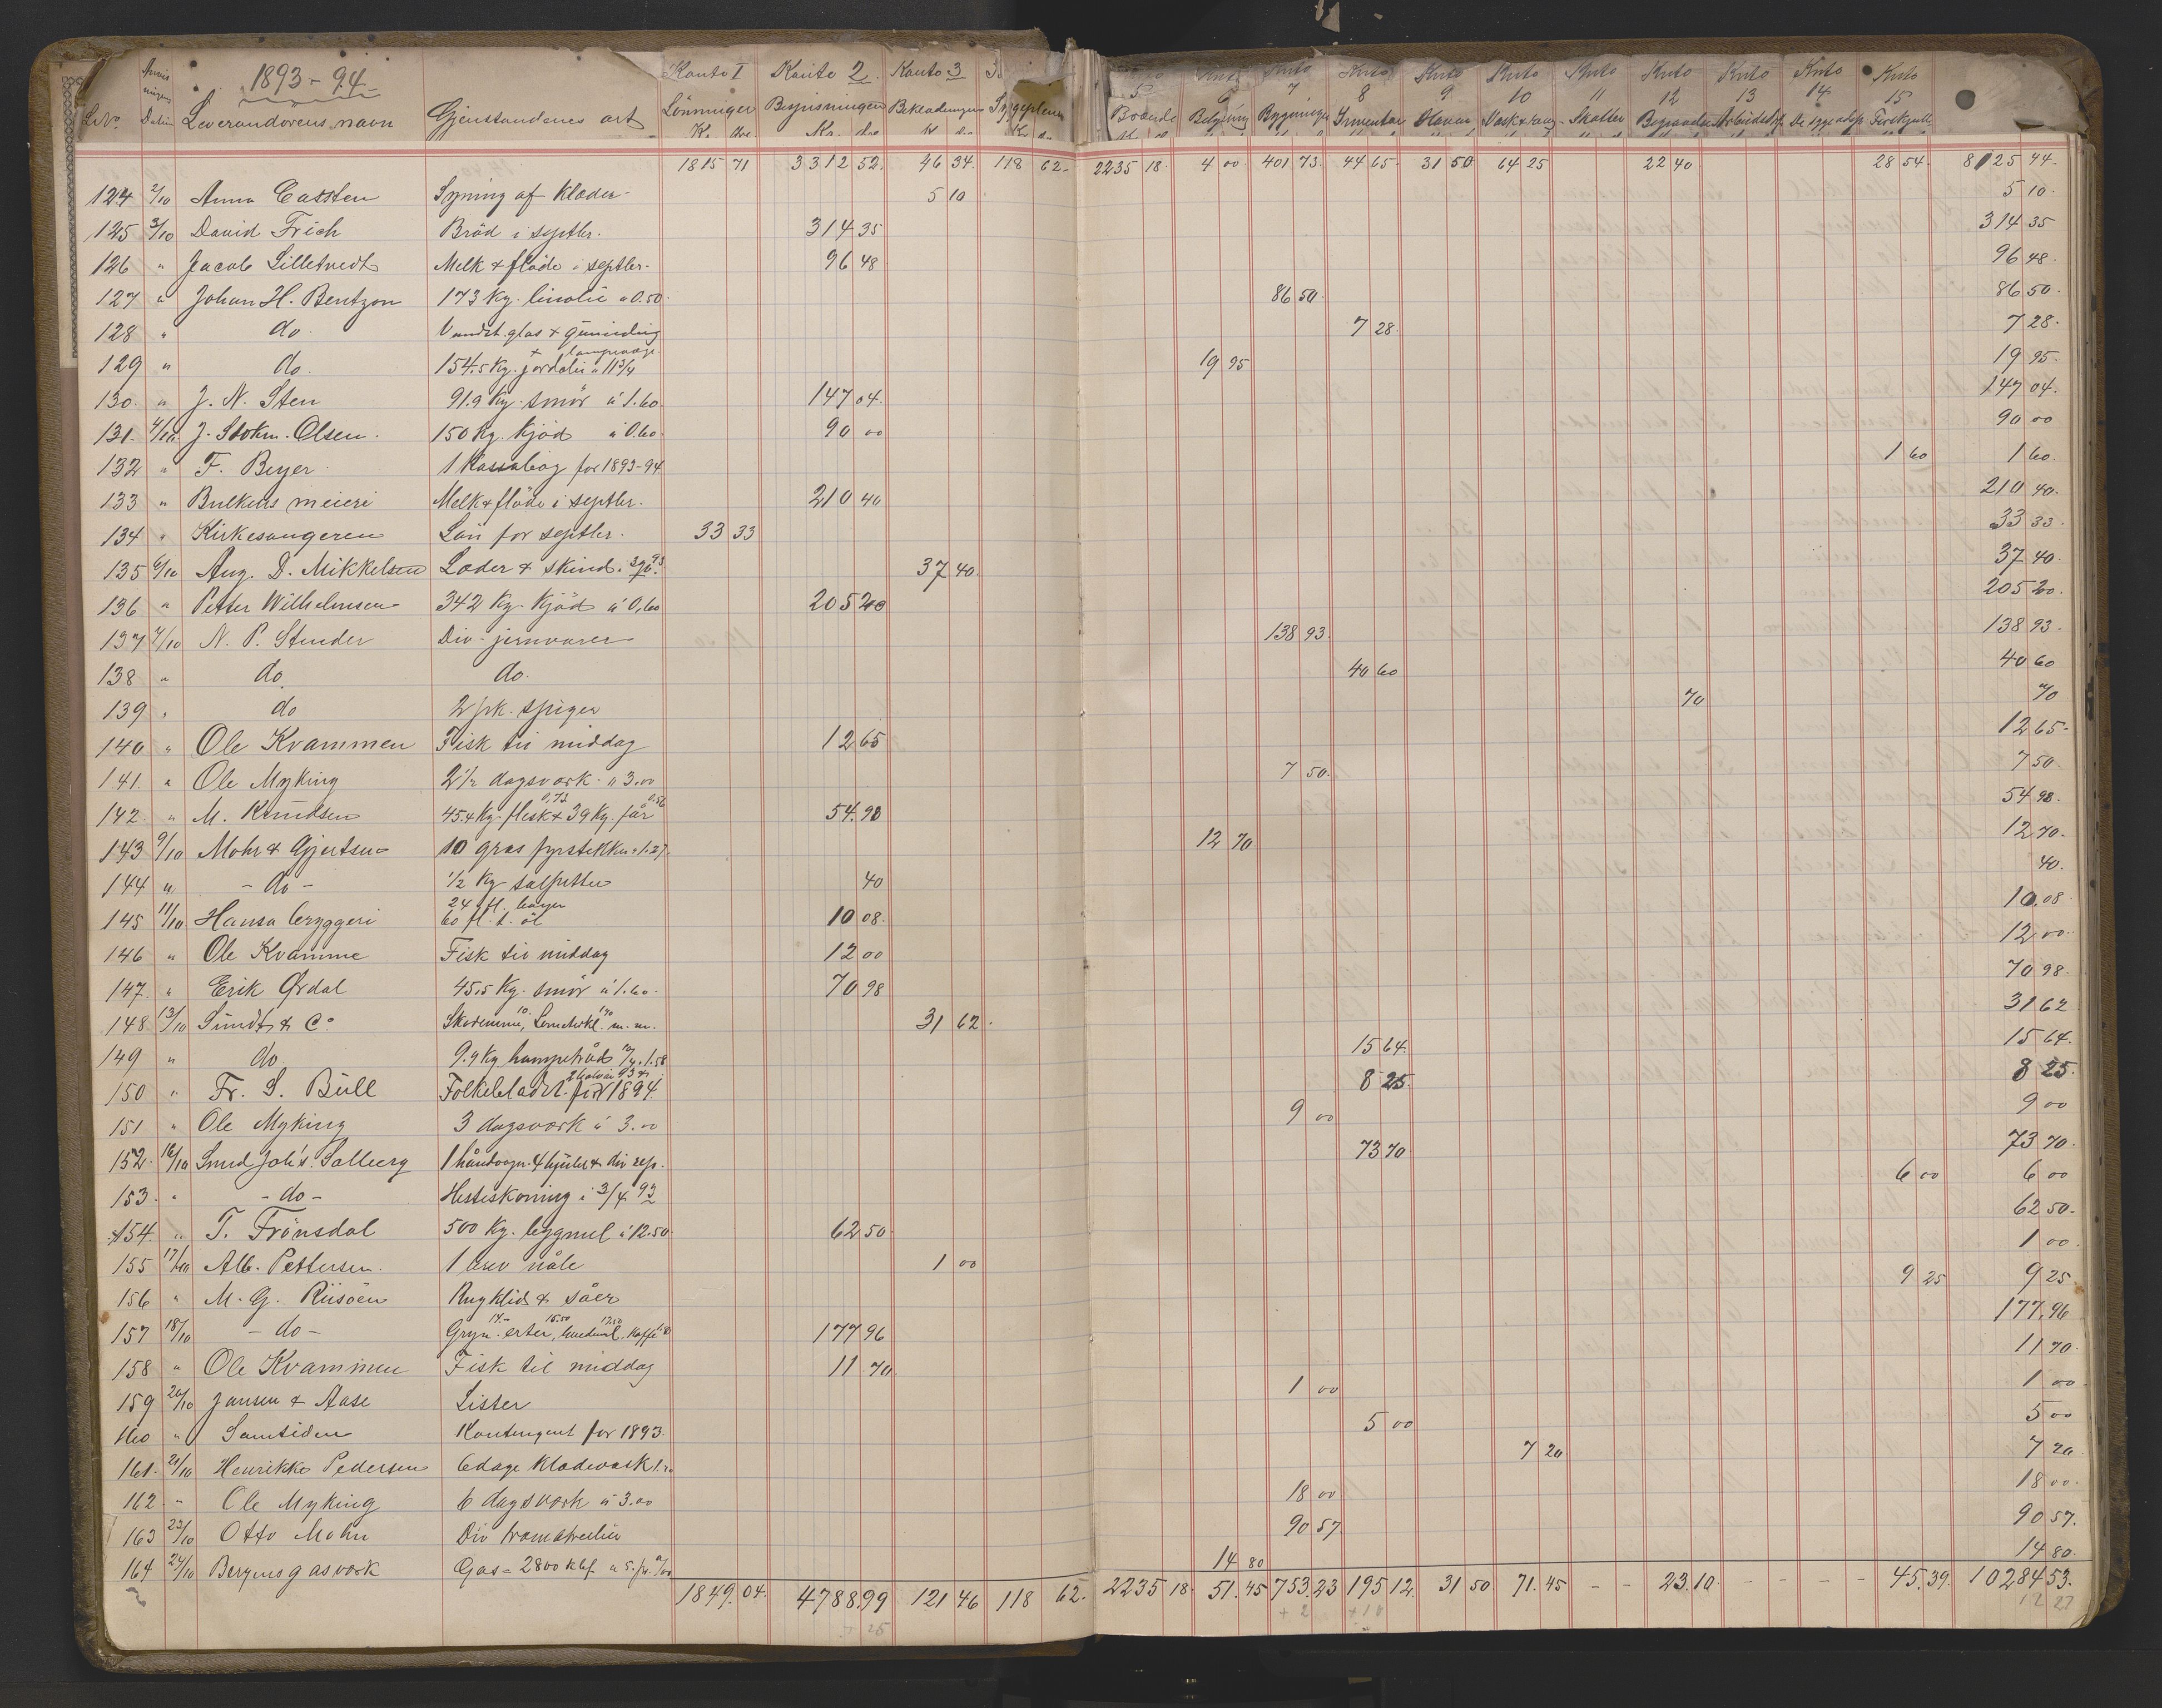 1893-94
L.No. Datum Leverandörens navn Gjenstandens art Konto I Lönninger Kr. öre Konto 2 Bespisningen Kr. öre Konto 3 Beklædningen Kr Sygeplein Kr. 5 Brænde Knto 6 Belysning Knto 7 Bygninger Knto 8 Inventar Knto 9 Knto 10 Knto 11 Skatter Knto 12 Knto 13 Knto 14 Knto 15
1815 71 3312 52. 46 34. 118 62. 2235 18. 4 00 401 73. 44 65. 31 50 64 25 22 40 28 54. 8125 44.
124 2/10 Anna Carsten Syning af Klæder 5 10 5 10.
125 3/10 David Frich Bröd i septbr. 314 35 314 35
126 " Jacob Lilletvedt Melk & flöde i septbr. 96 48 96 48.
127 " Johan H. Bentzon 173 Kg. linolie a 0.50. 86 50. 86 50.
128 " do. Vandst. glas & & lampevæge 7 28. 7 28.
129 " do. 154.5 Kg. jordolie a 11 3/4 19 95 19 95.
130. " J. N. Sten 91.9 Kg. smör á 1.60. 147 04. 147 04.
131. 4/10 J. Stokm. Olsen. 150 Kg. Kjöd á 0.60. 90 00 90 00
132 " F. Beyer. 1 Kassabog for 1893-94 1 60 1 60.
133 " Bulkens meieri Melk & flöde i septbr. 210 40 210 40.
134 " Kirkesangeren Lön for septbr. 33 33 33 33.
135 6/10 Aug. D. Mikkelsen Læder & skind i 37 40. 37 40.
136 " Petter Wilhelmsen 342 Kg. Kjöd á 0,60 205 20 205 20.
137 7/10 N. P. Stender Div. jernvarer 138 93. 138 93.
138 " do. do. 40 60 40 60
139 " do 2 pk. spiger 70 70
140 " Ole Kvammen Fisk til middag 12 65 12 65.
141. " Ole Myking 2 1/2 dagsværk a 3.00 7 50. 7 50.
142. " M. Knudsen 45.4 Kg. flesk & 39 Kg. får 54.98 54 98.
143 9/10 Mohr & Gjertsen 10 gros fyrstikker a 1.27. 12 70 12 70.
144 " - do - 1/2 Kg salpeter 40 40.
145 11/10 Hansa bryggeri 24 fl. bayer 60 fl. t. öl 10 08. 10.08
146 " Ole Kvamme Fisk til middag 12 00 12 00
147. " Erik Ørdal 45.5 Kg. smör á 1.60. 70 98 70 98.
148 13/10 Sundt & Co Skoremme, m.m. 31 62. 31 62
149 " do 9.9 Kg hampetråd a 1.58 15 64. 15 64.
150 " Fr. S. Büll Folkebladet for 1894. 8 25. 8 25.
151 " Ole Myking 3 dagsværk á 3.00 9 00 9 00
152. 16/10 Smed Johs. Solberg 1 håndvogn. 4 hjulet & div rep. 73 70 73 70.
153. " - do - Hesteskoning i 3/4 93 6 00 6 00
154. " T. Frönsdal 500 Kg. bygmel á 12.50. 62 50. 62 50.
155 17/10 Alb. Pettersen. 1 brev nåle 1 00 1 00
156 " M. G. Riisöen Rugklid & såer 9 25 9 25
157 18/10 - do - Gryn, erter, Kaffe 177 96 177.96
158 " Ole Kvammen Fisk til middag 11 70. 11 70.
159 20/10 Jansen & Aase Lister 1 00 1 00
160 " Samtiden Kontingent for 1893. 5 00 5 00
161. 21/10 Henrikke Pedersen 6 dage Klædevask 7 20 7 20
162 " Ole Myking 6 dagsværk á 3.00 18 00 18 00.
163 23/10 Otto Mohn Div 90 57 90 57.
164 24/10 Bergens gasværk Gas - 2800 kbf. 14 80 14 80.
1849.04. 4788.99 121 46 118 62. 2235 18 51.45 753.23 195 12. 31 50 71.45 - - 23.10. - - - - 45.39. 10284 53.
+ 2 + 10 12 27